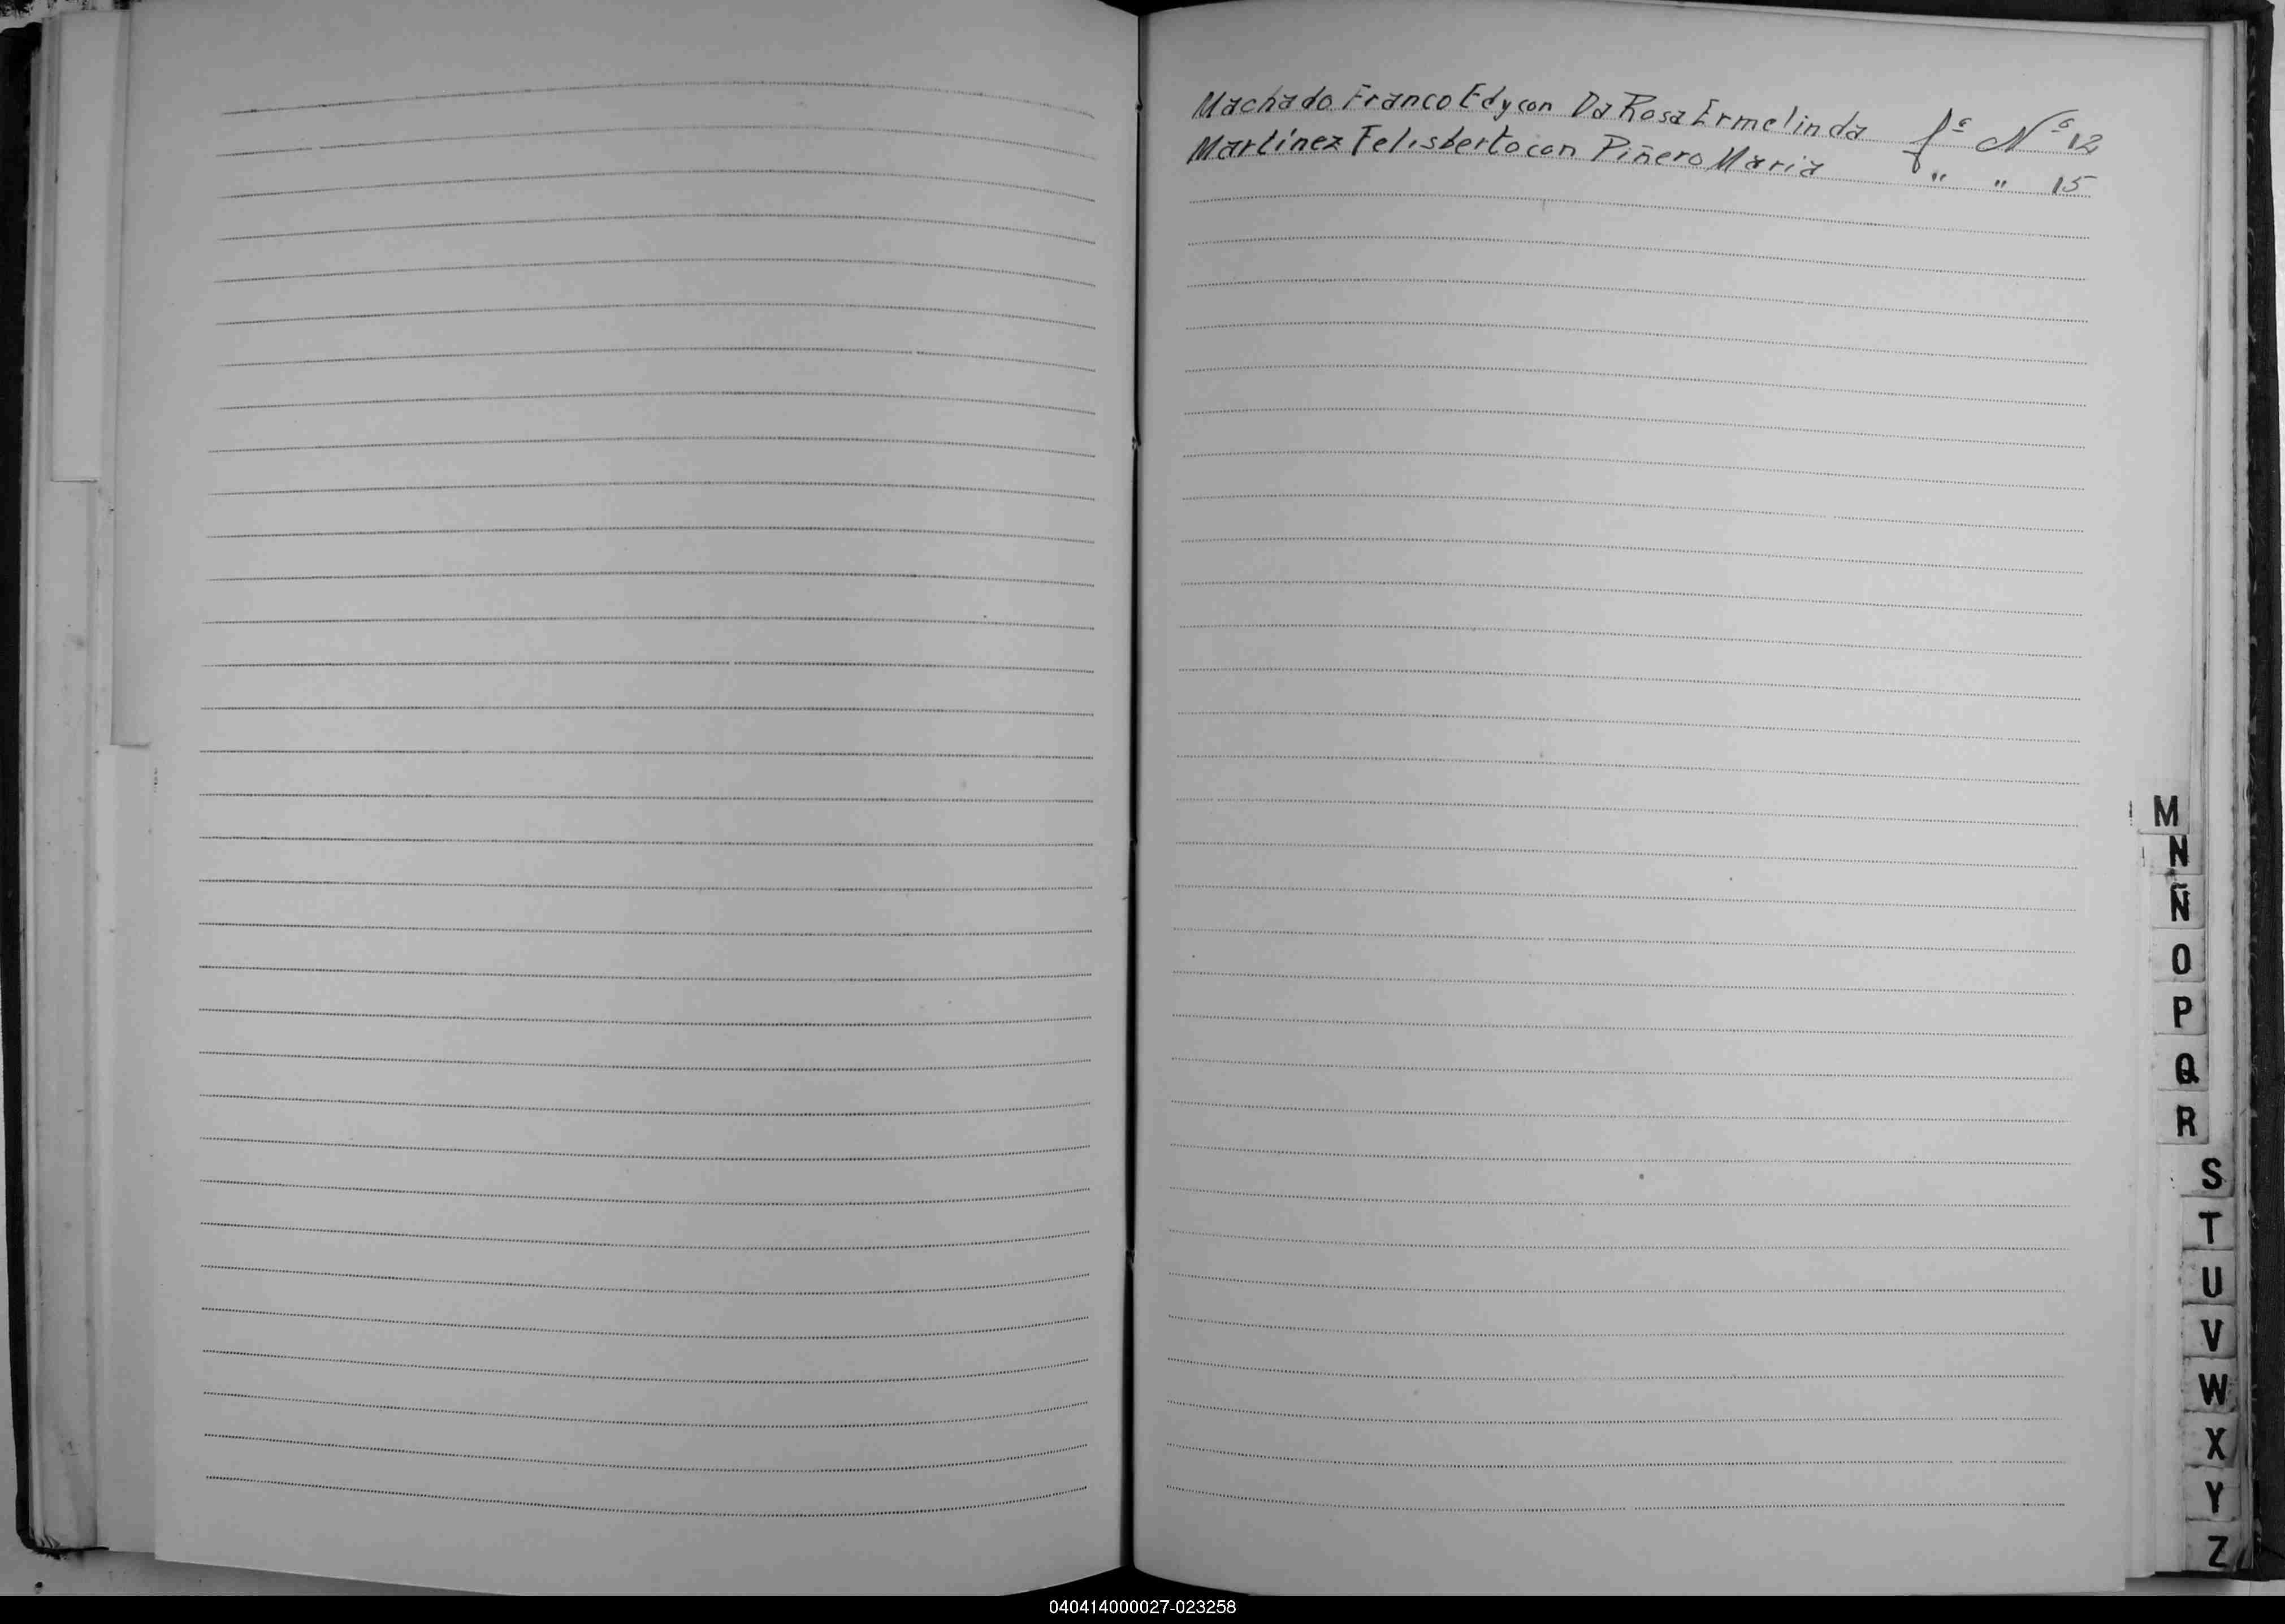 Machado Franco Edy con Da Rosa Ermelinda fº Nº 12
Martínez Felisberto con Piñero Maria " " 15
M
N
Ñ
O
P
Q
R
S
T
U
V
W
X
Y
Z
040414000027-023258